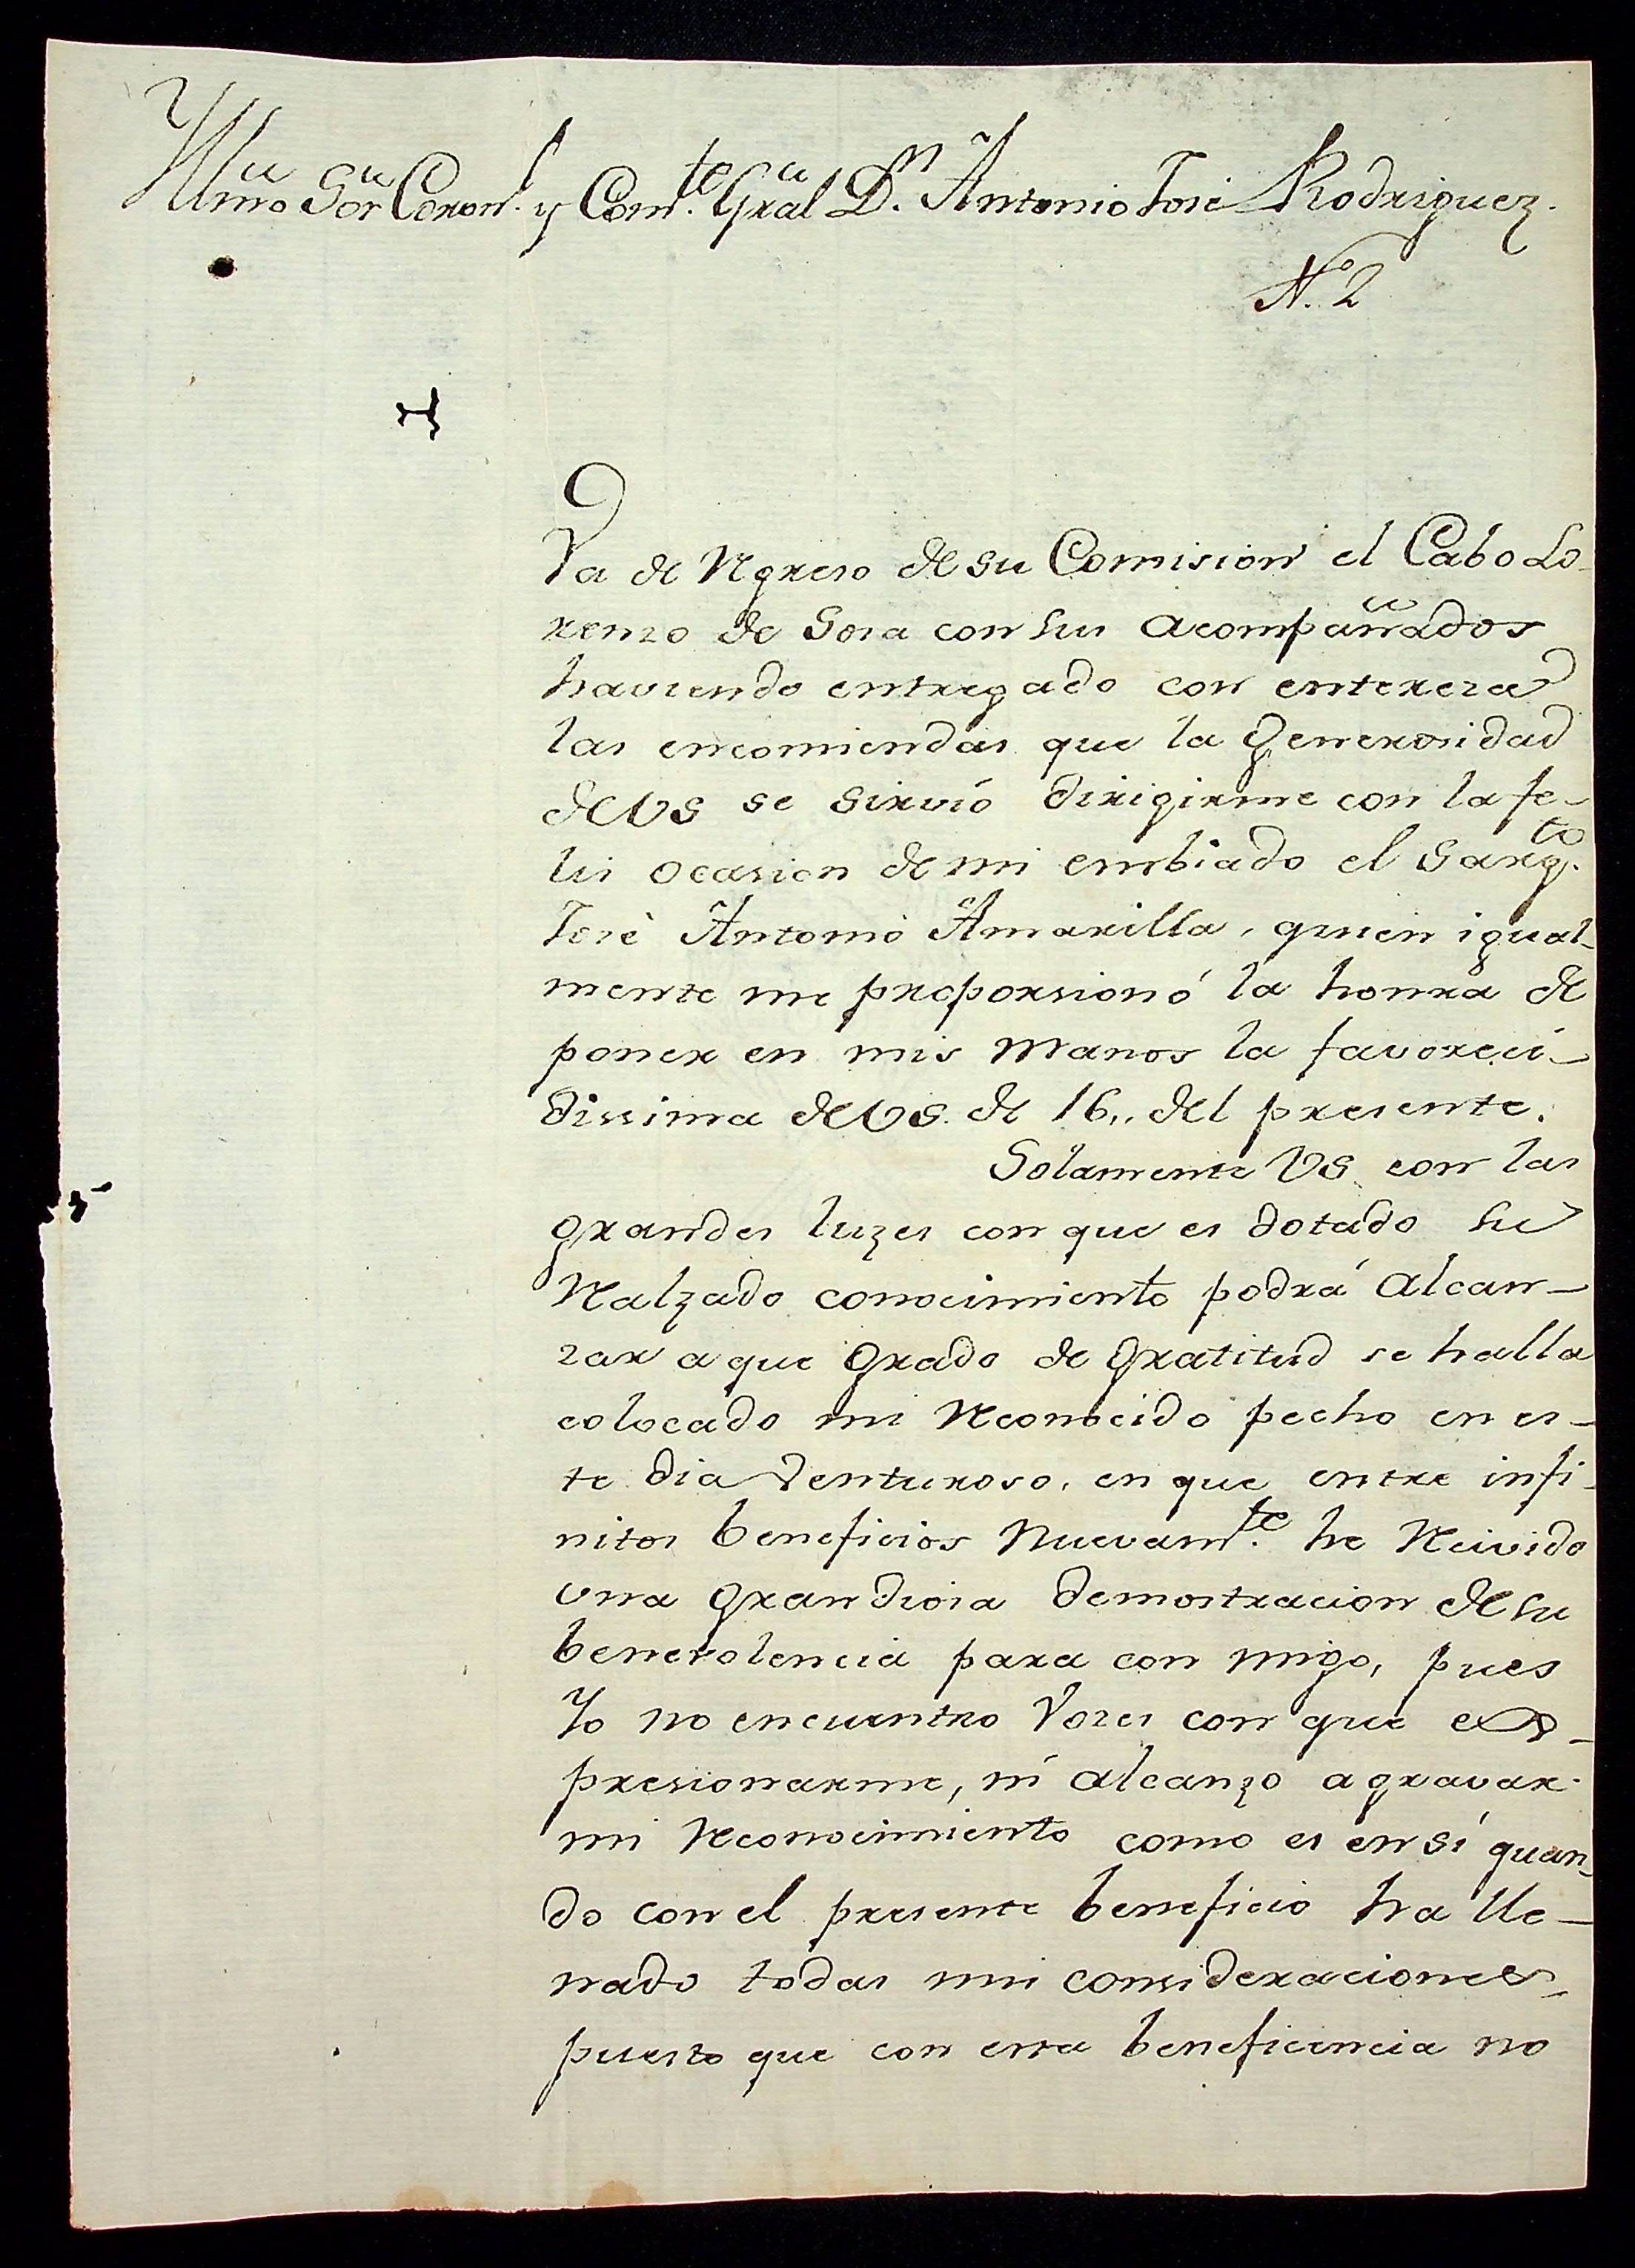 Yllmo Sor Coron.l y Com.te Gral D.n Antonio José Rodriguez.
N.º 2
Va de Regreso de su Comision el Cabo Lo-
renzo de Sosa con sus acompañados
haviendo entregado con entereza
las encomiendas que la Generosidad
de VS se sirvió dirigirme con la fe-
lis ocasion de mi embiado el Sarg.to
José Antonio Amarilla, quien igual-
mente me proporsionó la honra de
poner en mis manos la favoreci-
dissima de VS. de 16,, del presente.
Solamente VS con las
grandes luzes con que es dotado su
Realzado conocimiento podrá alcan-
zar a que grado de gratitud se halla
colocado mi Reconocido pecho en es-
te dia Venturoso, en que entre infi-
nitos beneficios nuevam.te he Recivido
una grandiosa demostracion de su
benevolencia para con migo, pues
Yo no encuentro Vozes con que ex-
presionarme, ni alcanzo agravar
mi Reconocimiento como es en sí quan-
do con el presente beneficio ha lle-
nado todas mis consideraciones,
puesto que con esta beneficencia no